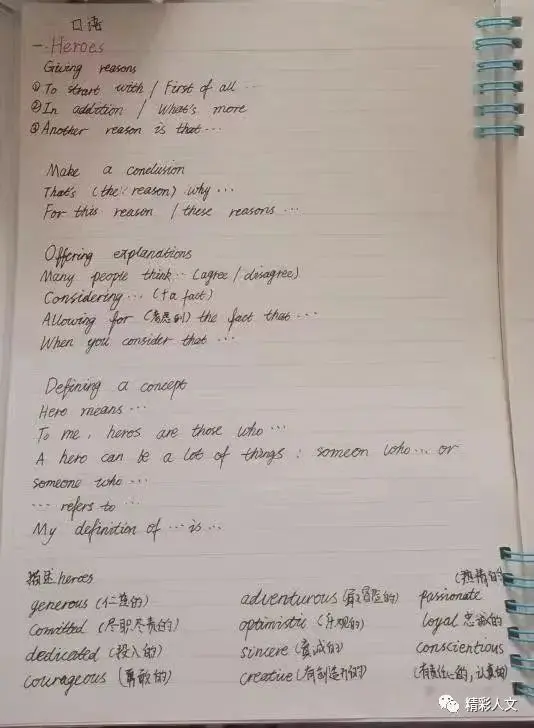 口语
一 Heroes
Giving reasons
① To start with / First of all …
② In addition / What's more
③ Another reason is that …
Make a conclusion
That's (the reason) why …
For this reason / these reasons …
Offering explanations
Many people think … (agree / disagree)
Considering … (+ a fact)
Allowing for (考虑到) the fact that …
When you consider that …
Defining a concept
Hero means …
To me, heros are those who …
A hero can be a lot of things : someon who … or
someone who …
… refers to …
My definition of … is …
描述 heroes
generous (仁慈的) adventurous (冒险的) passionate (热情的)
Committed (尽职尽责的) optimistic (乐观的) loyal 忠诚的
dedicated (投入的) sincere (真诚的) conscientious
courageous (勇敢的) creative (有创造力的) (有责任心的，认真的)
精彩人文